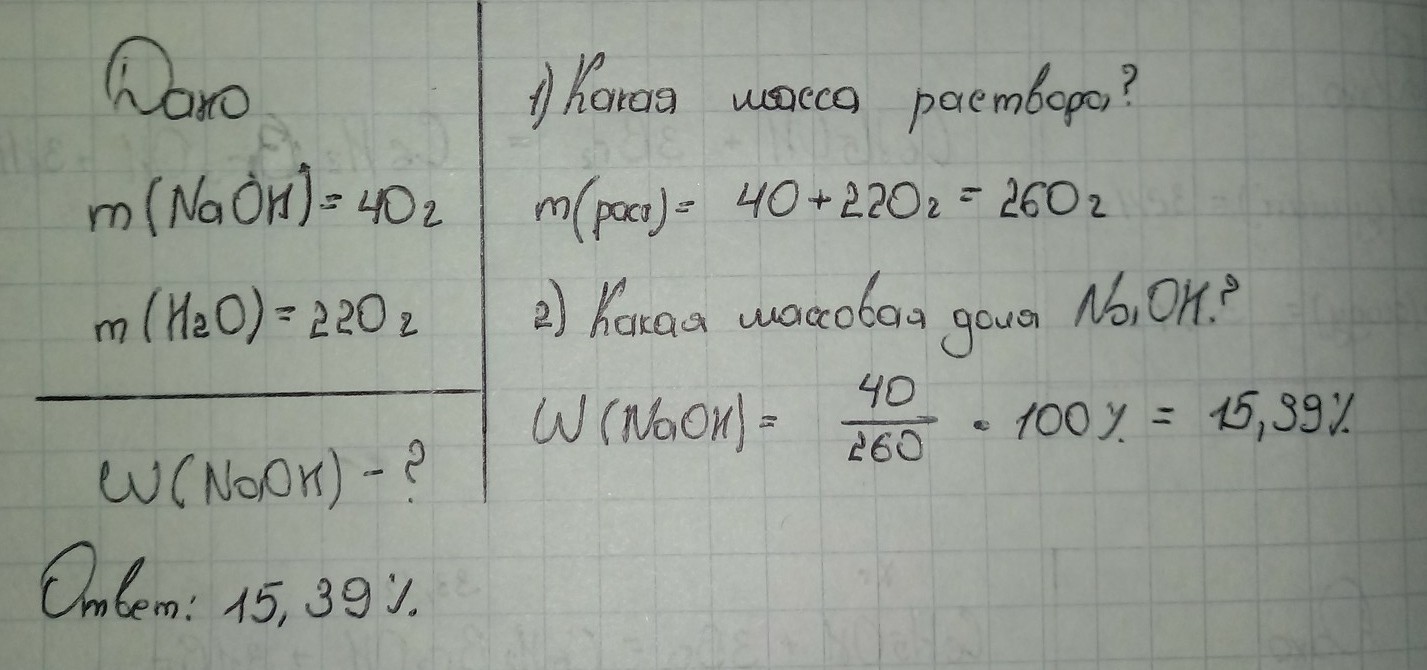 Дано
m(NaOH)=40г
m(H2O)=220г
W(NaOH)-?
1) Какая масса раствора?
m(раст)= 40+220г = 260г
2) Какая массовая доля NaOH?
W(NaOH)= 40/260 • 100% = 15,39%
Ответ: 15,39%.